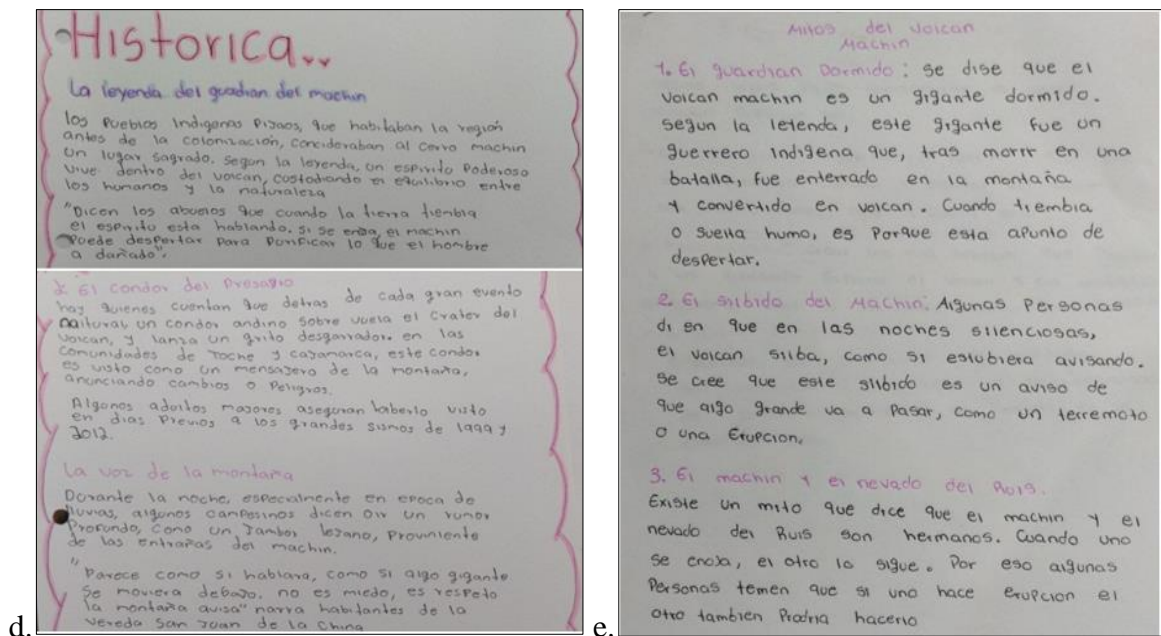 Historica..
La leyenda del guadian del machin
los Pueblos Indigenas Pijaos, que habitaban la región
antes de la colonización, concideraban al cerro machin
Un lugar sagrado. Segun la leyenda, un espirito Poderoso
Vive dentro del volcan, custodiando el equilibrio entre
los humanos y la naturaleza
"Dicen los abuelos que cuando la tierra tiembla
el espiritu esta hablando. si se enoja, el machin
Puede despertar Para Purificar lo que el hombre
a dañado".
2. El condor del Presagio
hay quienes cuentan que detras de cada gran evento
natural, un condor andino sobre vuela el crater del
volcan, y lanza un grito desgarrador. en las
comunidades de Toche y cajamarca, este condor
es visto como un mensajero de la montaña,
anunciando cambios o Peligros.
Algunos adultos mayores aseguran haberlo visto
en dias Previos a los grandes sismos de 1999 y
2012.
La voz de la montaña
Durante la noche, especialmente en epoca de
lluvias, algunos campesinos dicen oir un rumor
Profundo, como un Tambor lejano, proviniente
de las entrañas del machin.
"Parece como si hablara, como si algo gigante
se moviera debajo. no es miedo, es respeto
la montaña avisa" narra habitantes de la
vereda San Juan de la China
d.
Mitos del Volcan
Machin
1. El guardian Dormido: se dise que el
Volcan machin es un gigante dormido.
segun la letenda, este gigante fue un
guerrero indigena que, tras morir en una
batalla, fue enterrado en la montaña
y convertido en volcan. Cuando tiembla
o suelta humo, es Porque esta apunto de
despertar.
2. El silbido del Machin: Algunas Personas
di en que en las noches silenciosas,
el volcan silba, como si estubiera avisando.
se cree que este silbido es un aviso de
que algo grande va a Pasar, como un terremoto
o una Erupcion,
3. El machin y el nevado del Ruis.
Existe un mito que dice que el machin y el
nevado del Ruis son hermanos. Cuando uno
se enoja, el otro lo sigue. Por eso algunas
Personas temen que si uno hace erupcion el
otro tambien Prodria hacerlo
e.